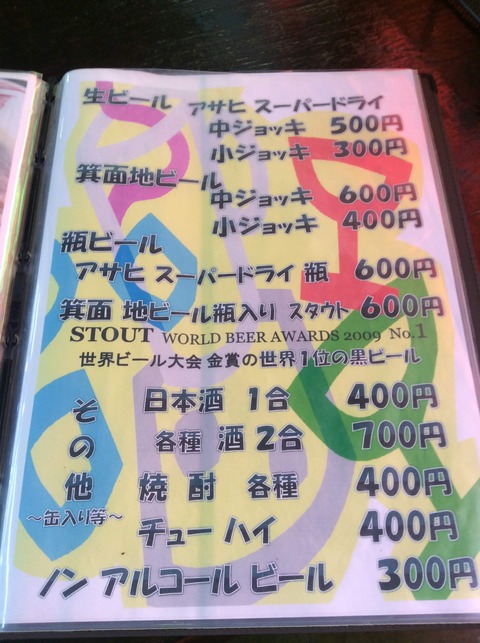 生ビール アサヒ スーパードライ
中ジョッキ 500円
小ジョッキ 300円
箕面地ビール
中ジョッキ 600円
小ジョッキ 400円
瓶ビール
アサヒ スーパードライ 瓶 600円
箕面 地ビール瓶入り スタウト 600円
STOUT WORLD BEER AWARDS 2009 No.1
世界ビール大会 金賞の世界1位の黒ビール
その他
～缶入り等～
日本酒 1合 400円
各種 酒2合 700円
焼酎 各種 400円
チューハイ 400円
ノンアルコールビール 300円